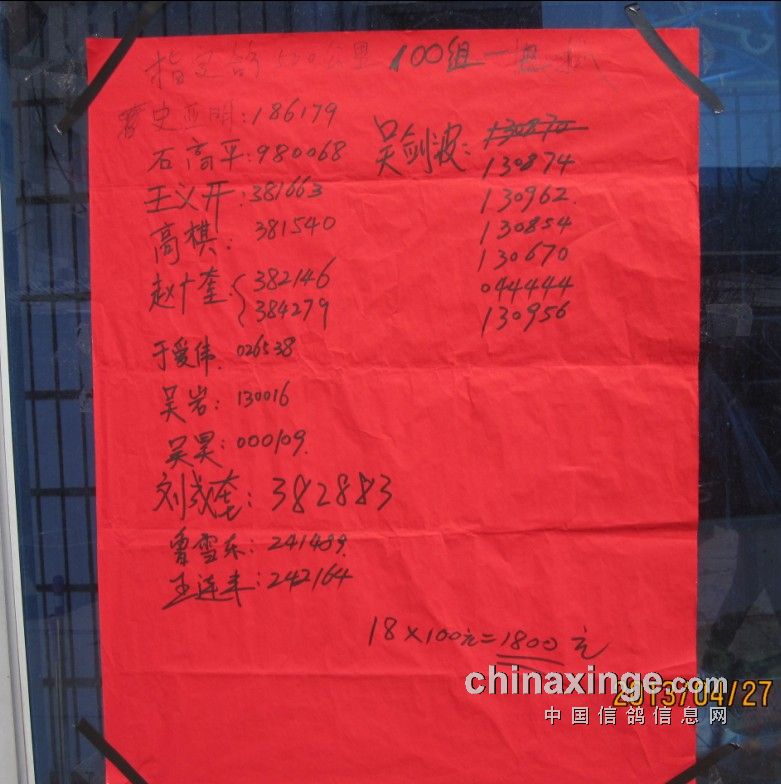 指定鸽 520公里 100组一
史亚明:186179
石高平:980068
王义开:381663
高棋: 381540
赵十奎:{382146
384279
于爱伟: 026538
吴岩: 130016
吴昊: 000109
刘成奎: 382883
曹雪东: 241489
王连丰: 242164
吴剑波: 130870
130874
130962
130854
130670
044444
130956
18×100元=1800元
chinaxinge.com
2013/04/27
中国信鸽信息网